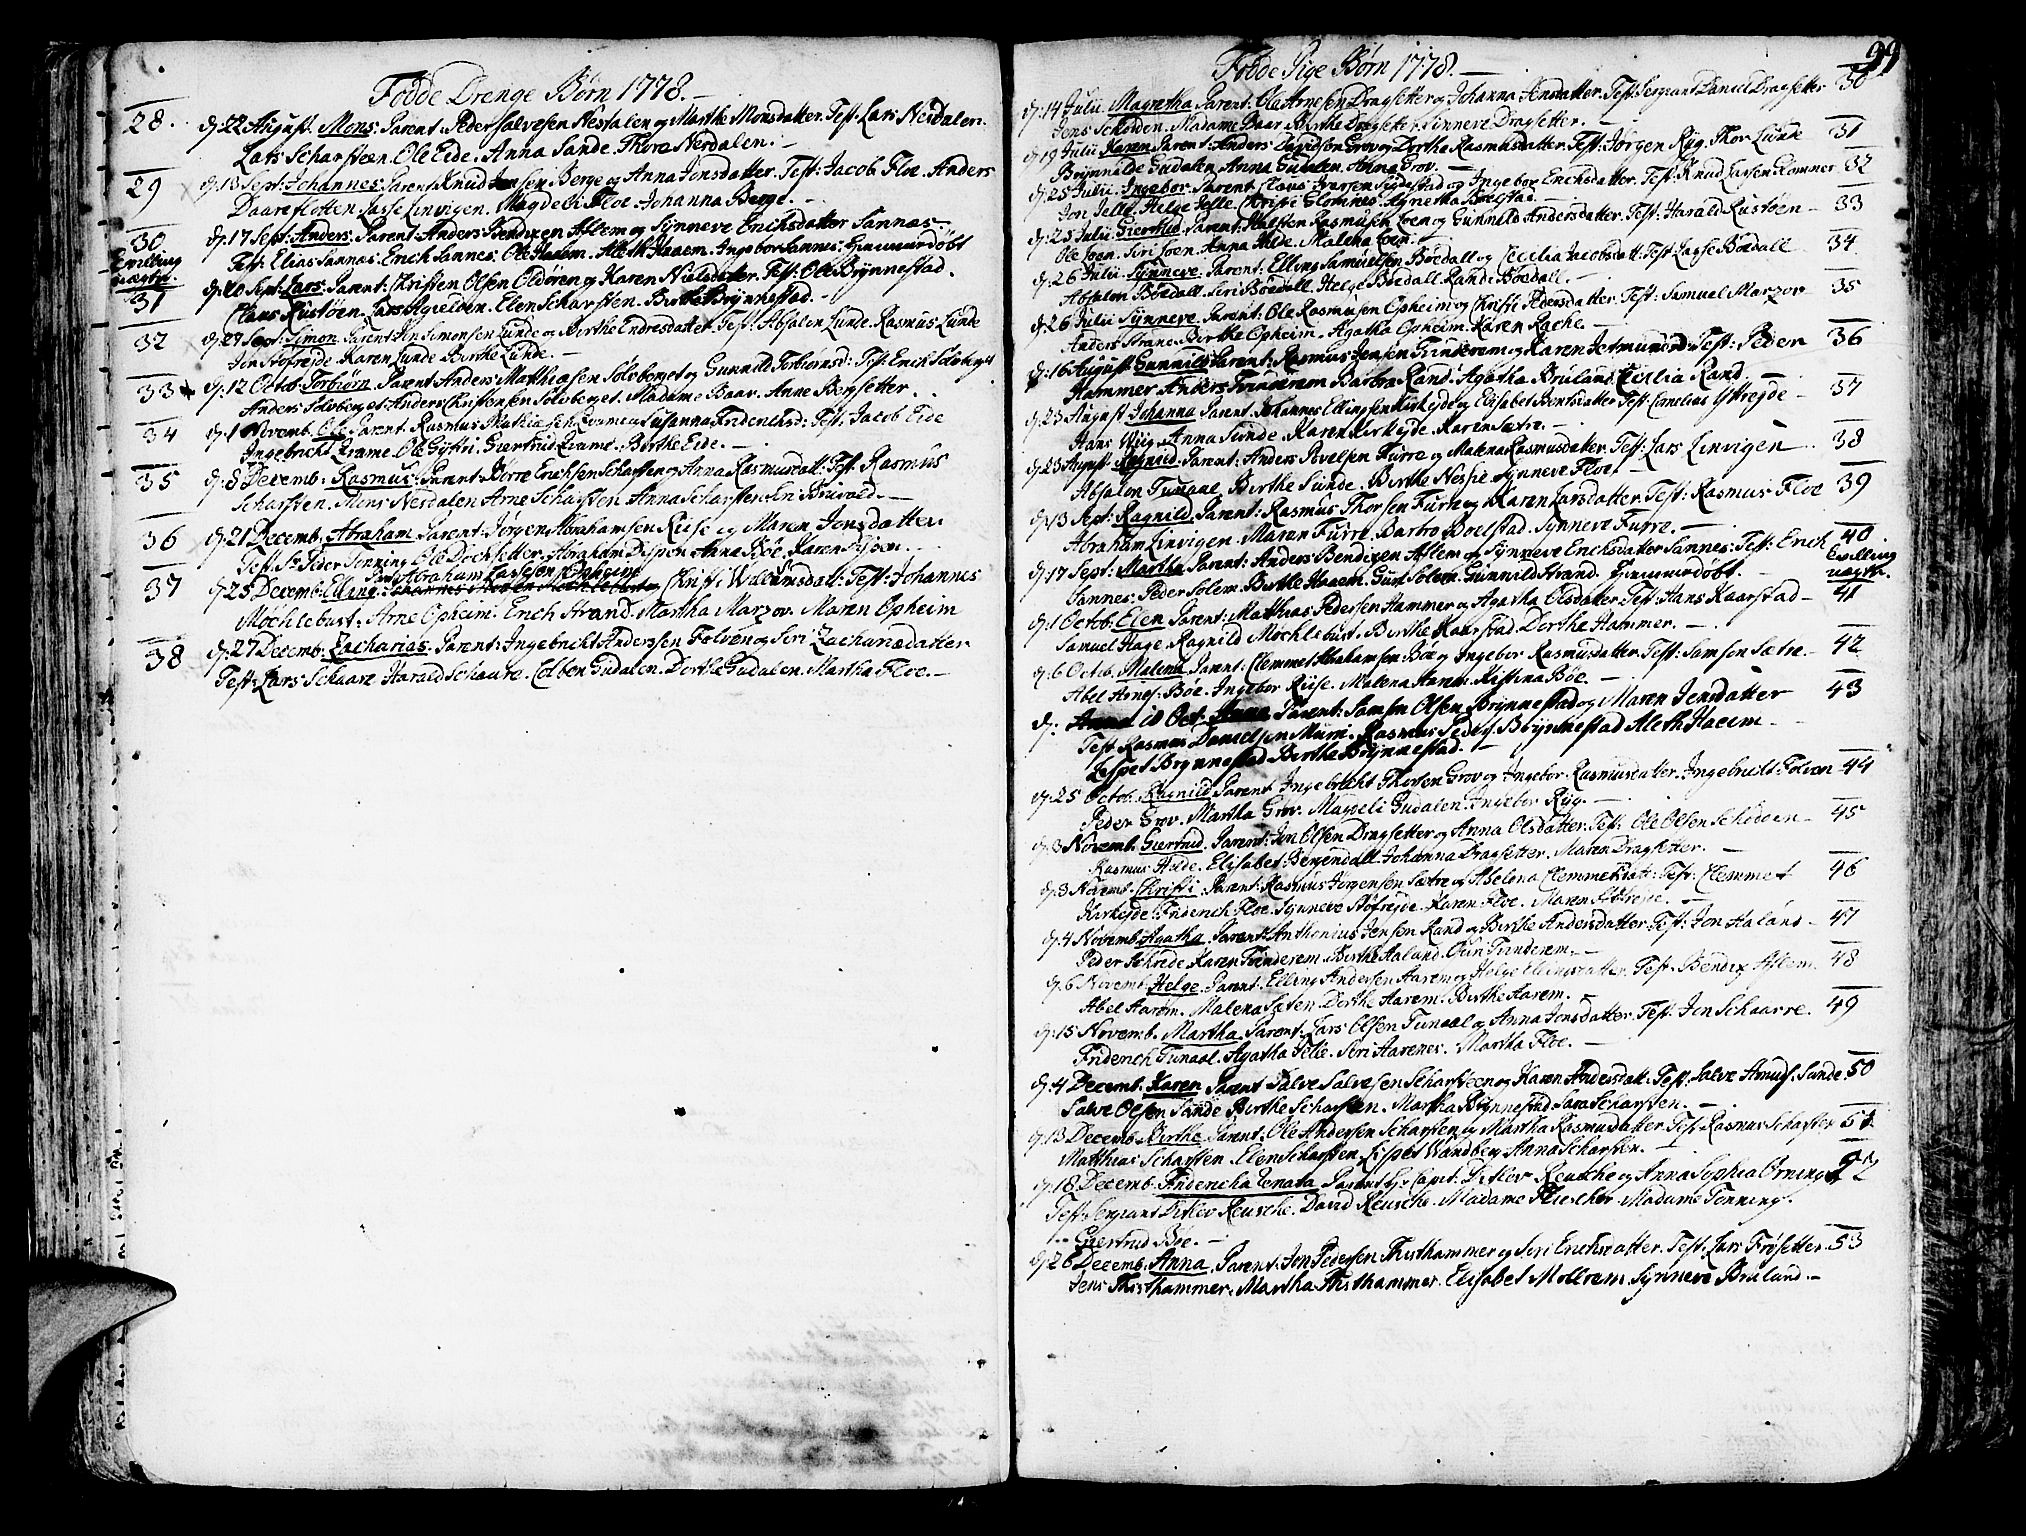 Fødde Drenge Børn 1778.
28. d: 22 August. Mons. Parent: Peder Salvesen Nesdalen og Marthe Monsdatter. Test: Lars Nesdalen.
Lars Scharsteen. Ole Eide. Anna Sande. Thore Nesdalen.
29 d: 13 Sept: Johannes. Parent: Knud Jensen Berge og Anna Jonsdatter. Test: Jacob Floe. Anders
Daareflotten Lasse Linvigen. Magdeli Floe. Johanna Berge.
30 d: 17 Sept: Anders. Parent: Anders Bendixen Aslem og Synneve Erichsdatter Sannes.
Tvilling
Test: Elias Sannes. Erich Sannes. Ole Haaem. Aleth Haaem. Ingebor Sannes. Hjemmedøbt
31 d: 20 Sept: Lars. Parent: Christen Olsen Oldøren og Karen Nielsdatter. Test: Ole Brynnestad.
Claus Rustøen. Lars Elen Scharsten. Birthe Brynnestad.
32 d: 29 Sept: Simon. Parent: Jon Simonsen Lunde og Birthe Endresdatter. Test: Absalon Lunde. Rasmus Lunde
Jon Stofrejde. Karen Lunde. Birthe Lunde.
33 d: 12 Octob. Torbiørn. Parent: Anders Matthiasen Solvberget og Gunnild Torbiørnsd: Test: Erich Solvberget
Anders Solvberget. Anders Christensen Solvberget. Madame Baar. Anne Bergsetter.
34 d: 1 Novemb. Ole. Parent: Rasmus Mathiasen Qvame og Susanna Fridenlhsd: Test: Jacob Eide
Ingebricht Qvame. Ole Giertrud Qvame. Birthe Eide.
35 d: 8 Decemb. Rasmus. Parent: Børre Erichsen Scharsten og Anna Rasmusdatt: Test: Rasmus
Scharsten. Mons Nesdalen. Arne Scharsten. Anna Scharsten.
36 d: 21 Decemb. Abraham. Parent: Jørgen Abrahamsen Riise og Maren Jonsdatter.
Test: Sr Peder Tonning. Ole Dochsetter. Abraham Anna Bøe. Karen
37 Abraham Lassesen Opheim
d: 25 Decemb. Elling. Christi Willumsdatt: Test: Johannes
Mochlebust. Arne Opheim. Erich Strand. Martha Marzov. Maren Opheim
38 d: 27 Decemb. Zacharias. Parent: Ingebricht Anderssen Folven og Siri Zachariædatter
Test: Lars Schaare. Harald Schaare. Colben Gudalen. Dorthe Gudalen. Martha Floe.
99
Fødde Pige Børn 1778.
d: 14 Julii Magretha. Parent: Ole Arnesen Dragsetter og Johanna Jensdatter. Test: Sergeant Daniel Dragsetter 30
Jens Schodden. Madame Baar. Birthe Dragsetter. Sinneve Dragsetter.
d: 19 Julii Karen. Parent: Anders Davidsen Grov og Dorthe Rasmusdatter. Test: Jørgen Ryg. Thor Lunde 31
Brynnilde Gudalen. Anna Gudalen. Anna Grov.
d: 25 Julii Ingebor. Parent: Claus Iversen og Ingebor Erichsdatter. Test: Knud Larsen Hommer 32
Jon Jelle. Helge Jelle. Christi Glomnes. Agnetha Boelstad.
d: 25 Julii Giertrud. Parent: Halsten Rasmusen Loen og Gunnild Andersdatter. Test: Harald Rustøen 33
Ole Loen. Siri Loen. Anna Hilde. Malena Loen.
d: 26 Julii Synneve. Parent: Elling Samuelsen Boedall og Cecilia Jacobsdatt: Test: Lasse Boedall 34
Absalon Boedall. Siri Boedall. Helge Boedall. Randi Boedall.
d: 26 Julii Synneve. Parent: Ole Rasmusen Opheim og Christi Pedersdatter. Test: Samuel Marzov 35
Anders Strand. Birthe Opheim. Agatha Opheim. Karen Rache.
d: 16 August. Gunnild. Parent: Rasmus Jensen Tvinderem og Karen Jetmundsd: Test: Peder 36
Hammer. Anders Tvinderem. Barbra Rand. Agatha Bruland. Cecilia Rand.
d: 23 August. Johanna. Parent: Johannes Ellingsen Kirkejde og Elisabet Bentsdatter. Test: Cornelius Yttrejde 37
Hans Myg. Anna Sunde. Karen Kirkejde. Karen Sætre.
d: 23 August: Ragnild. Parent: Anders Povelsen Furre og Malena Rasmusdatter. Test: Lars Linvigen 38
Absalon Tunaal. Birthe Sunde. Birthe Synneve Floe.
d: 13 Sept: Ragnild. Parent: Rasmus Thorsen Furre og Karen Larsdatter. Test: Rasmus Floe 39
Abraham Linvigen. Maren Furre. Barbro Boelstad. Synneve Furre.
d: 17 Sept: Martha. Parent: Anders Bendixen Aslem og Synneve Erichsdatter Sannes. Test: Erich 40
Sannes. Peder Solem. Birthe Haaem. Guri Solem. Gunnild Strand. Hjemmedøbt. Tvilling
d: 1 Octob. Elen. Parent: Matthias Pedersen Hammer og Agatha Olsdatter. Test: Hans Kaarstad 41
Samuel Hage. Ragnild Mochlebust. Birthe Kaarstad. Dorthe Hammer.
d: 6 Octob. Malena. Parent: Clemmet Abrahamsen Bøe og Ingebor Rasmusdatter. Test: Samsen Sætre 42
Abel Arnes. Bøe. Ingebor Riise. Malena Kistina Bøe.
d: 18 Oct. Anna. Parent: Samsen Olsen Brynnestad og Maren Jensdatter 43
Test: Rasmus Danielsen Muri. Rasmus Peders. Brynnestad. Aleth Haeem.
Lespet Brynnestad. Birthe Brynnestad.
d: 25 Octob. Ragnild. Parent: Ingebricht Thorsen Grov og Ingebor Rasmusdatter. Ingebricht Folven 44
Peder Grov. Martha Grov. Magdeli Gudalen. Ingebor Ryg.
d: 3 Novemb. Giertrud. Parent: Jon Olsen Dragsetter og Anna Olsdatter. Test: Ole Olsen Schodden 45
Rasmus Hilde. Elisabet Bergendall. Johanna Dragsetter. Maren Dragsetter.
d: 3 Novemb. Christi. Parent: Rasmus Jørgensen Sætre og Abelona Clemmetsdatt: Test: Clemmet 46
Kirkejde. Friderich Floe. Synneve Stofrejde. Karen Floe. Maren
d: 4 Novemb. Agatha. Parent: Anthonius Jensen Rand og Birthe Andersdatter. Test: Jon Haland 47
Peder Schrede. Karen Tvinderem. Birthe Aaland. Tvinderem.
d: 6 Novemb. Helge. Parent: Elling Andersen Aarem og Helge Ellingsdatter. Test: Bendix Aslem 48
Abel Aarem. Malena Sæten. Dorthe Aarem. Birthe Aarem.
d: 15 Novemb. Martha. Parent: Lars Olsen Tunaal og Anna Jonsdatter. Test: Jon Schaarre. 49
Friderich Tunaal. Agatha Jelle. Siri Aarenes. Martha Floe.
d: 4 Decemb. Karen. Parent: Salve Salvesen Scharsteen og Karen Andersdatt: Test: Salve Amuds. Sande 50
Salve Olsen Sande. Birthe Scharsten. Martha Brynnestad. Sara Scharsten.
d: 13 Decemb. Birthe. Parent: Ole Andersen Scharsten og Martha Rasmusdatter. Test: Rasmus Scharsten 51
Matthias Scharsten. Elen Scharsten. Lispet Wandberg. Anna Scharsten.
d: 18 Decemb. Fridericha Renata. Parent: Hr Capit: Ditlev Reusche og Anna Sophia Orning 52
Test: Sergeant Ditlev Reusche. David Reusche. Madame Fleischer. Madame Tonning.
Giertrud Bøe.
d: 26 Decemb. Anna. Parent: Jon Pedersen Thisthammer og Siri Erichsdatter. Test: Lars Frøsetter 53
Jens Thisthammer. Martha Thisthammer. Elisabet Mollrem. Synneve Bruland.